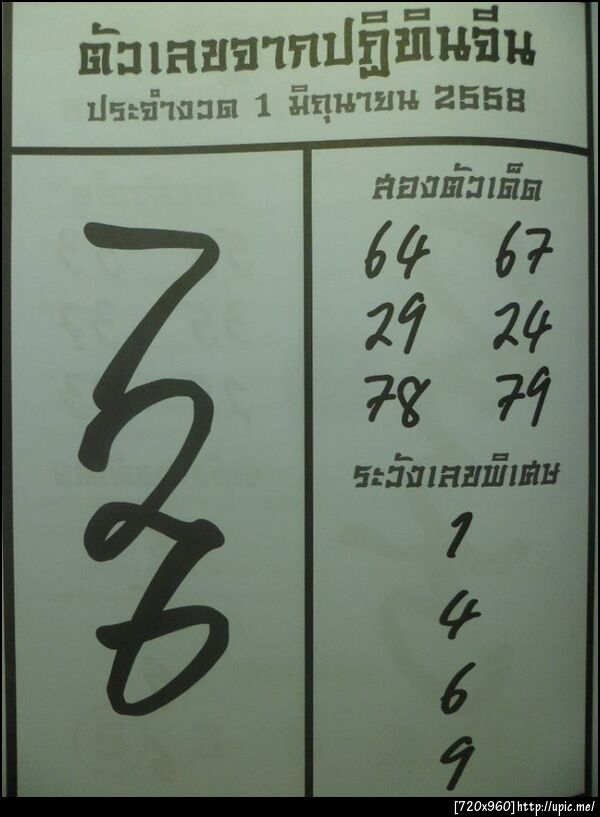 ตัวเลขจากปฏิทินจีน
ประจำงวด 1 มิถุนายน 2558
7
2
6
สองตัวเด็ด
64 67
29 24
78 79
ระวังเลขพิเศษ
1
4
6
9
[720x960]http://upic.me/